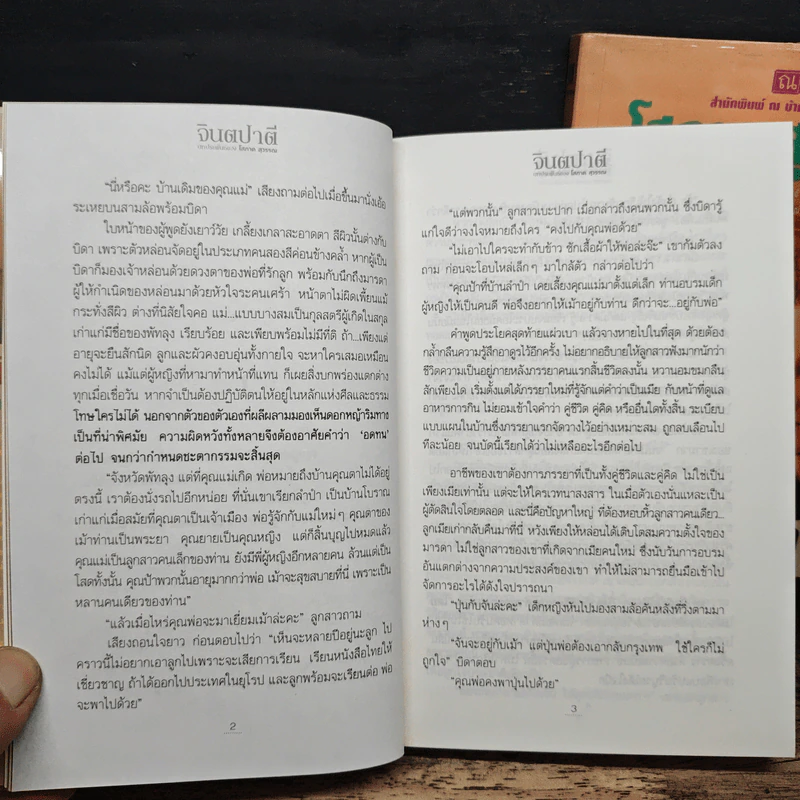 จินตปาตี
บทประพันธ์ของ โสภาค สุวรรณ
"นี่หรือคะ บ้านเดิมของคุณแม่" เสียงถามต่อไปเมื่อขึ้นมานั่งเอ้อ
ระเหยบนสามล้อพร้อมบิดา
ใบหน้าของผู้พูดยังเยาว์วัย เกลี้ยงเกลาสะอาดตา สีผิวนั้นต่างกับ
บิดา เพราะตัวหล่อนจัดอยู่ในประเภทคนสองสีค่อนข้างคล้ำ หากผู้เป็น
บิดาก็มองเจ้าหล่อนด้วยดวงตาของพ่อที่รักลูก พร้อมกับนึกถึงมารดา
ผู้ให้กำเนิดของหล่อนมาด้วยหัวใจระคนเศร้า หน้าตาไม่ผิดเพี้ยนแม้
กระทั่งสีผิว ต่างที่นิสัยใจคอ แม่...แบบบางสมเป็นกุลสตรีผู้เกิดในสกุล
เก่าแก่มีชื่อของพัทลุง เรียบร้อย และเพียบพร้อมไม่มีที่ติ ถ้า...เพียงแต่
อายุจะยืนสักนิด ลูกและผัวคงอบอุ่นทั้งกายใจ จะหาใครเสมอเหมือน
คงไม่ได้ แม้แต่ผู้หญิงที่หามาทำหน้าที่แทน ก็เผยสิ่งบกพร่องแตกต่าง
ทุกเมื่อเชื่อวัน หากจำเป็นต้องปฏิบัติตนให้อยู่ในหลักแห่งศีลและธรรม
โทษใครไม่ได้ นอกจากตัวของตัวเองที่ผลีผลามมองเห็นดอกหญ้าริมทาง
เป็นที่น่าพิศมัย ความผิดหวังทั้งหลายจึงต้องอาศัยคำว่า 'อดทน'
ต่อไป จนกว่ากำหนดชะตากรรมจะสิ้นสุด
"จังหวัดพัทลุง แต่ที่คุณแม่เกิด พ่อหมายถึงบ้านคุณตาไม่ได้อยู่
ตรงนี้ เราต้องนั่งรถไปอีกหน่อย ที่นั่นเขาเรียกลำปำ เป็นบ้านโบราณ
เก่าแก่เมื่อสมัยที่คุณตาเป็นเจ้าเมือง พ่อรู้จักกับแม่ใหม่ๆ คุณตาของ
เม้าท่านเป็นพระยา คุณยายเป็นคุณหญิง แต่ก็สิ้นบุญไปหมดแล้ว
คุณแม่เป็นลูกสาวคนเล็กของท่าน ยังมีพี่ผู้หญิงอีกหลายคน ล้วนแต่เป็น
โสดทั้งนั้น คุณป้าพวกนั้นอายุมากกว่าพ่อ เม้าจะสุขสบายที่นี่ เพราะเป็น
หลานคนเดียวของท่าน"
"แล้วเมื่อไหร่คุณพ่อจะมาเยี่ยมเม้าล่ะคะ" ลูกสาวถาม
เสียงถอนใจยาว ก่อนตอบไปว่า "เห็นจะหลายปีอยู่น่ะลูก ไป
คราวนี้ไม่อยากเอาลูกไปเพราะจะเสียการเรียน เรียนหนังสือไทยให้
เชี่ยวชาญ ถ้าได้ออกไปประเทศในยุโรป และลูกพร้อมจะเรียนต่อ พ่อ
จะพาไปด้วย"
2
จินตปาตี
บทประพันธ์ของ โสภาค สุวรรณ
"แต่พวกนั้น" ลูกสาวเบะปาก เมื่อกล่าวถึงคนพวกนั้น ซึ่งบิดารู้
แก่ใจดีว่าจงใจหมายถึงใคร "คงไปกับคุณพ่อด้วย"
"ไม่เอาไปใครจะทำกับข้าว ซักเสื้อผ้าให้พ่อล่ะจ๊ะ" เขาก้มตัวลง
ถาม ก่อนจะโอบไหล่เล็กๆ มาใกล้ตัว กล่าวต่อไปว่า
"คุณป้าที่บ้านลำปำ เคยเลี้ยงคุณแม่มาตั้งแต่เล็ก ท่านอบรมเด็ก
ผู้หญิงให้เป็นคนดี พ่อจึงอยากให้เม้าอยู่กับท่าน ดีกว่าจะ...อยู่กับพ่อ"
คำพูดประโยคสุดท้ายแผ่วเบา แล้วจางหายไปในที่สุด ด้วยต้อง
กล้ำกลืนความรู้สึกอาดูรไว้อีกครั้ง ไม่อยากอธิบายให้ลูกสาวฟังมากนักว่า
ชีวิตความเป็นอยู่ภายหลังภรรยาคนแรกสิ้นชีวิตลงนั้น หวานอมขมกลืน
สักเพียงใด เริ่มตั้งแต่ได้ภรรยาใหม่ที่รู้จักแต่คำว่าเป็นเมีย กับหน้าที่ดูแล
อาหารการกิน ไม่ยอมเข้าใจคำว่า คู่ชีวิต คู่คิด หรืออื่นใดทั้งสิ้น ระเบียบ
แบบแผนในบ้านซึ่งภรรยาแรกจัดวางไว้อย่างเหมาะสม ถูกลบเลือนไป
ทีละน้อย จนบัดนี้เรียกได้ว่าไม่เหลืออะไรอีกต่อไป
อาชีพของเขาต้องการภรรยาที่เป็นทั้งคู่ชีวิตและคู่คิด ไม่ใช่เป็น
เพียงเมียเท่านั้น แต่จะให้ใครเวทนาสงสาร ในเมื่อตัวเองนั่นแหละเป็น
ผู้ตัดสินใจโดยตลอด และนี่คือปัญหาใหญ่ ที่ต้องหอบหิ้วลูกสาวคนเดียว...
ลูกเมียเก่ากลับคืนมาที่นี่ หวังเพียงให้หล่อนได้เติบโตสมความตั้งใจของ
มารดา ไม่ใช่ลูกสาวของเขาที่เกิดจากเมียคนใหม่ ซึ่งนับวันการอบรม
อันแตกต่างจากความประสงค์ของเขา ทำให้ไม่สามารถยื่นมือเข้าไป
จัดการอะไรได้ดังใจปรารถนา
"ปุ่นกับจันล่ะคะ" เด็กหญิงหันไปมองสามล้อคันหลังที่วิ่งตามมา
ห่างๆ
"จันจะอยู่กับเม้า แต่ปุ่นพ่อต้องเอากลับกรุงเทพ ใช้ใครก็ไม่
ถูกใจ" บิดาตอบ
"คุณพ่อคงพาปุ่นไปด้วย"
3
ณ
สำนักพิมพ์ ณ บ้าน